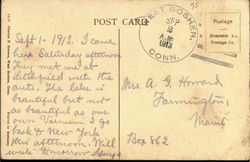 POST CARD
WEST GOSHEN,
SEP
2
A.M.
1913
CONN.
Postage
Domestic 1c.
Foreign 2c.
Sept 1- 1913. I came
here Saturday afternoon
They met me at
Litchfield with the
auto. The lake is
beautiful but not
as beautiful as our
own I go
back to New York
this afternoon. Will
write tomorrow
Mrs. A. G. Howard
Farmington,
Maine
Box 862